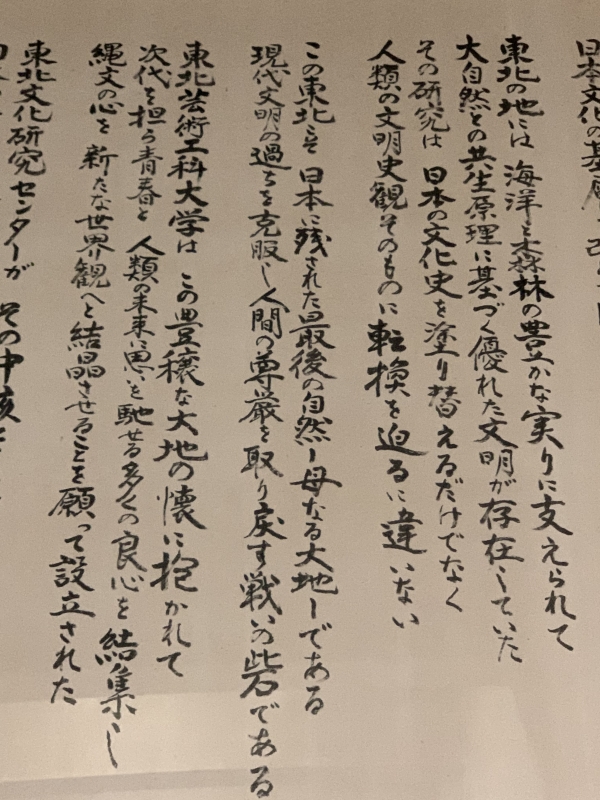 日本文化の基層
東北の地には 海洋と森林の豊かな実りに支えられて
大自然との共生原理に基づく優れた文明が存在していた
その研究は 日本の文化史を塗り替えるだけでなく
人類の文明史観そのものに転換を迫るに違いない
この東北こそ 日本に残された最後の自然ー母なる大地ーである
現代文明の過ちを克服し人間の尊厳を取り戻す戦いの砦である
東北芸術工科大学は この豊穣な大地の懐に抱かれて
次代を担う青春と 人類の未来に思いを馳せる多くの良心を結集し
縄文の心を 新たな世界観へと結晶させることを願って設立された
東北文化研究センターが その中核